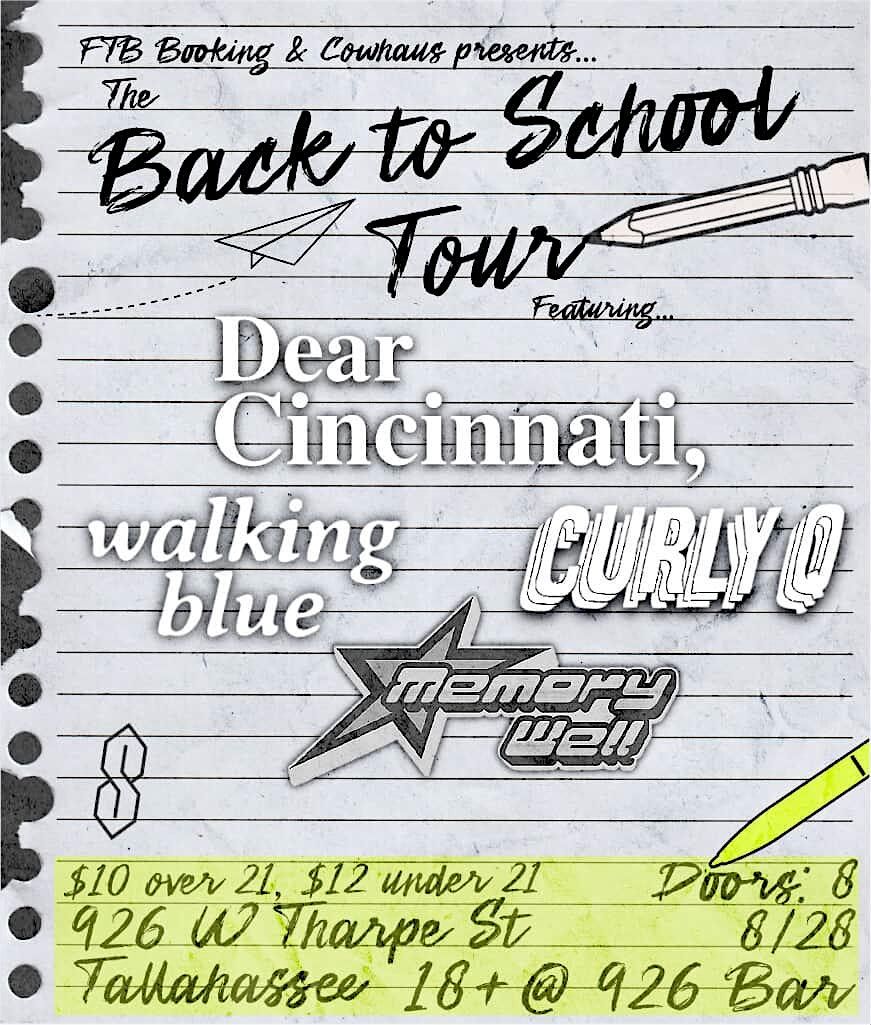 FTB Booking & Cowhaus presents...
The
Back to School
Tour
Featuring...
Dear
Cincinnati,
walking
blue
CURLY Q
Memory
Well
$10 over 21, $12 under 21 Doors: 8
926 W Tharpe St 8/28
Tallahassee 18+ @ 926 Bar